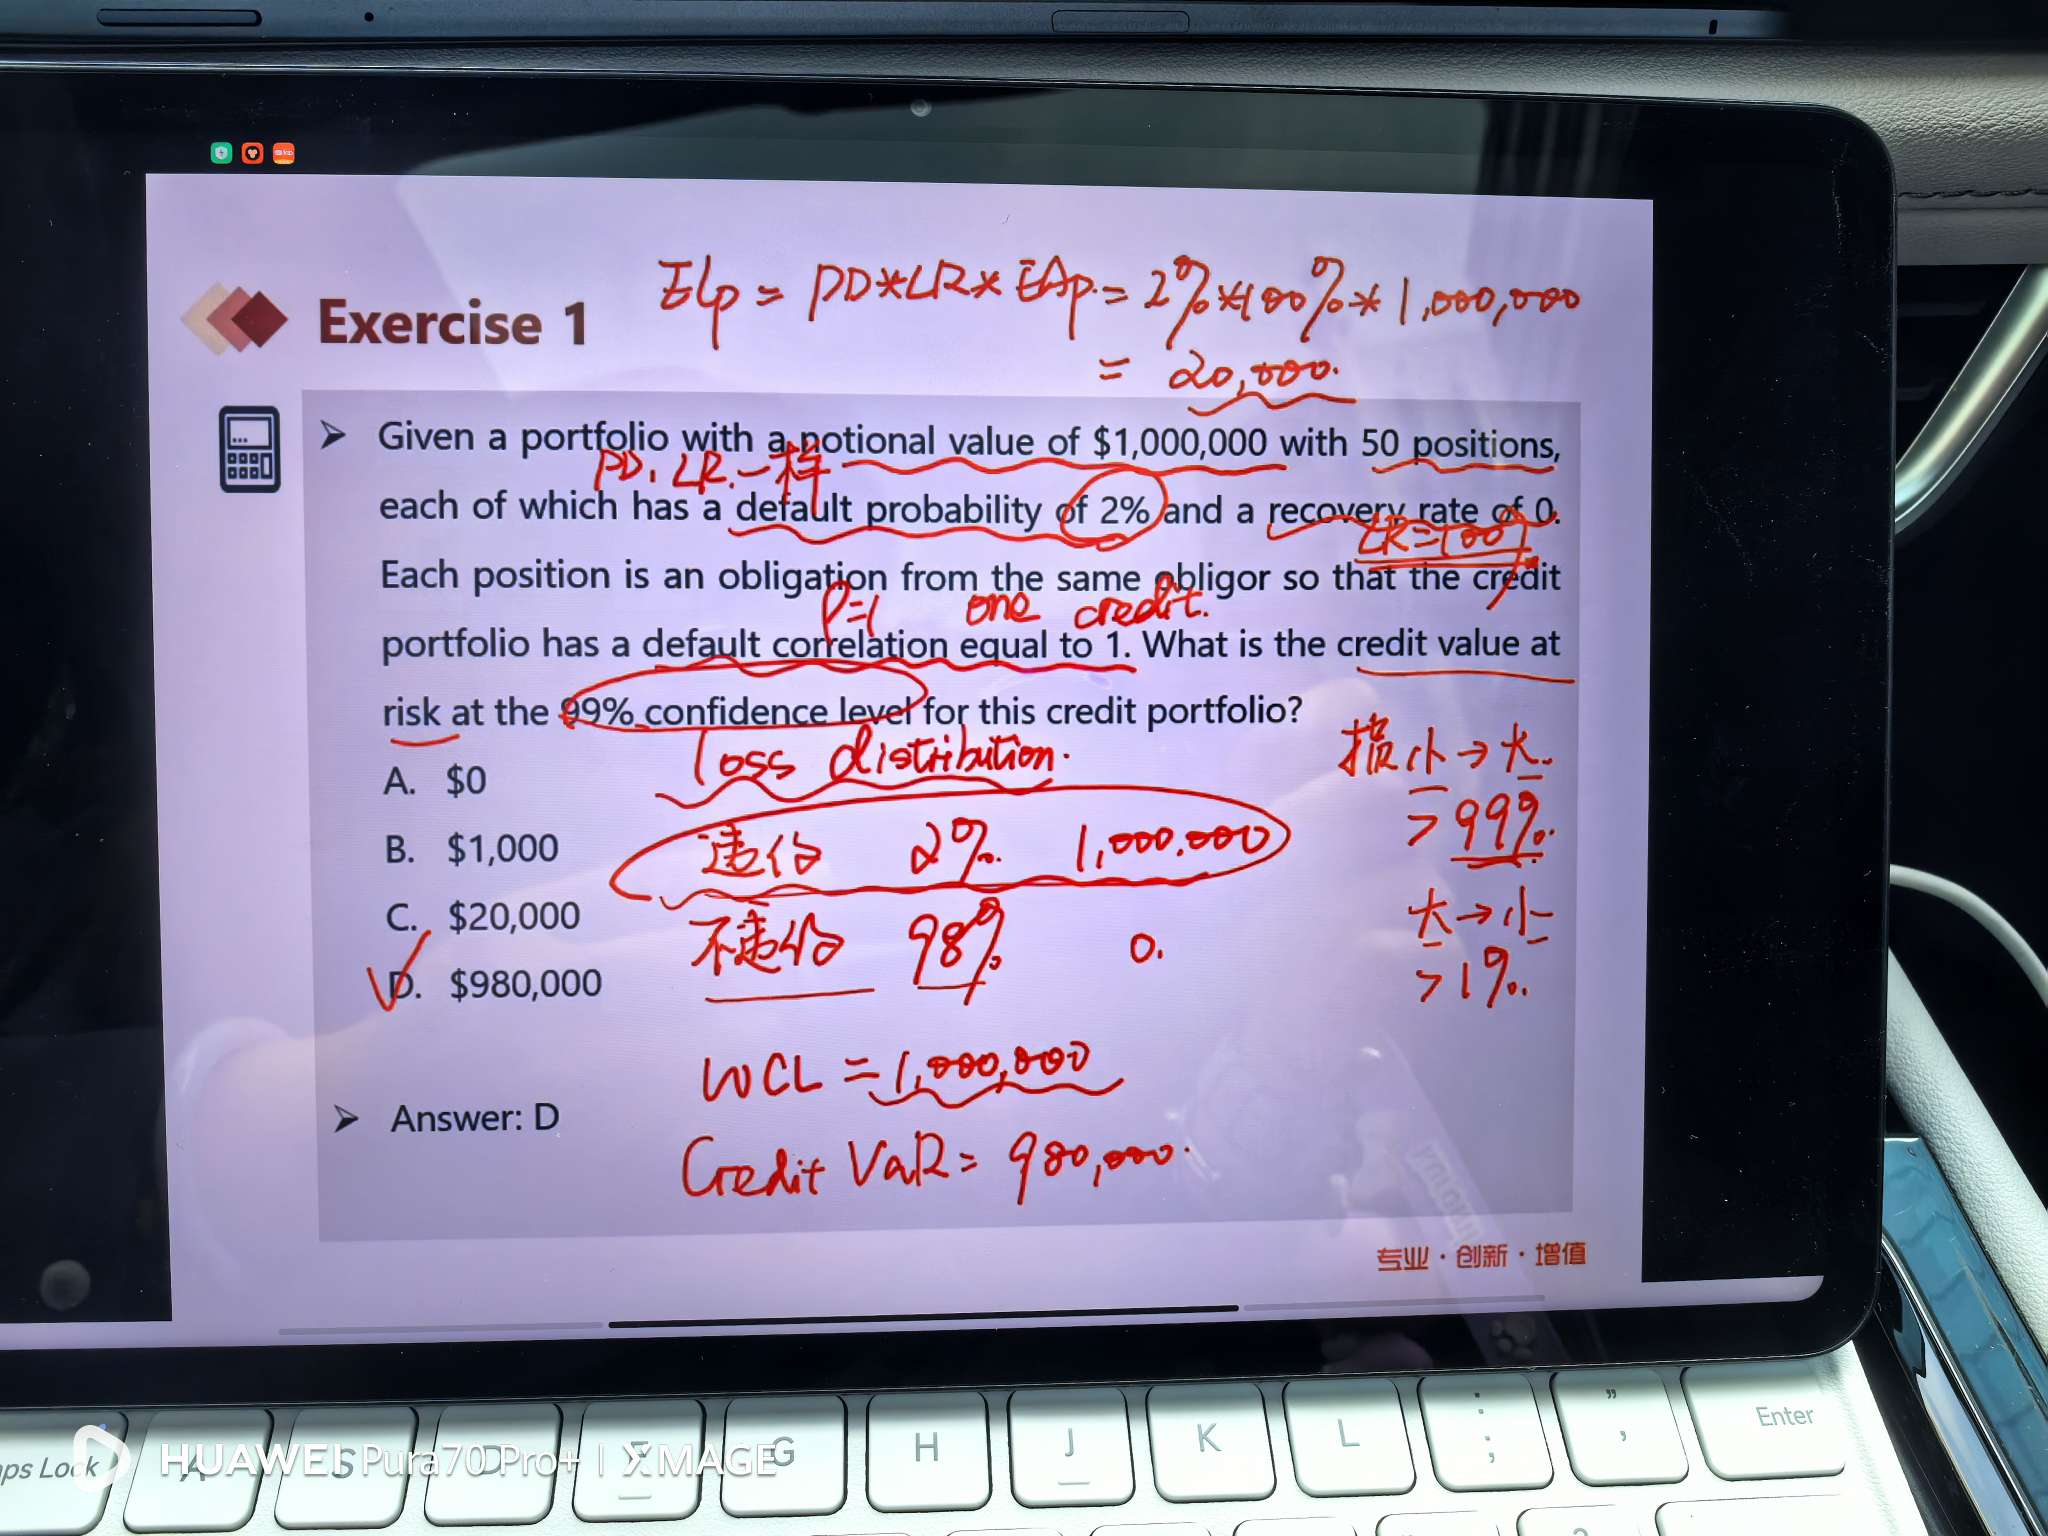 ELp = PD*LR*EAp. = 2%*100%*1,000,000
= 20,000.
Exercise 1
Given a portfolio with a notional value of $1,000,000 with 50 positions,
PD, LR.一样
each of which has a default probability of 2% and a recovery rate of 0.
LR=100%
Each position is an obligation from the same obligor so that the credit
ρ=1 one credit.
portfolio has a default correlation equal to 1. What is the credit value at
risk at the 99% confidence level for this credit portfolio?
loss distribution.
小→大.
>99%.
A. $0
B. $1,000
违约 2%. 1,000,000
C. $20,000
不违约 98% 0.
大→小
>1%.
D. $980,000
WCL = 1,000,000
Answer: D
Credit VaR = 980,000.
专业·创新·增值
ps Lock A S D F G H J K L : ; " , Enter
HUAWEI Pura70 Pro+ | XMAGE